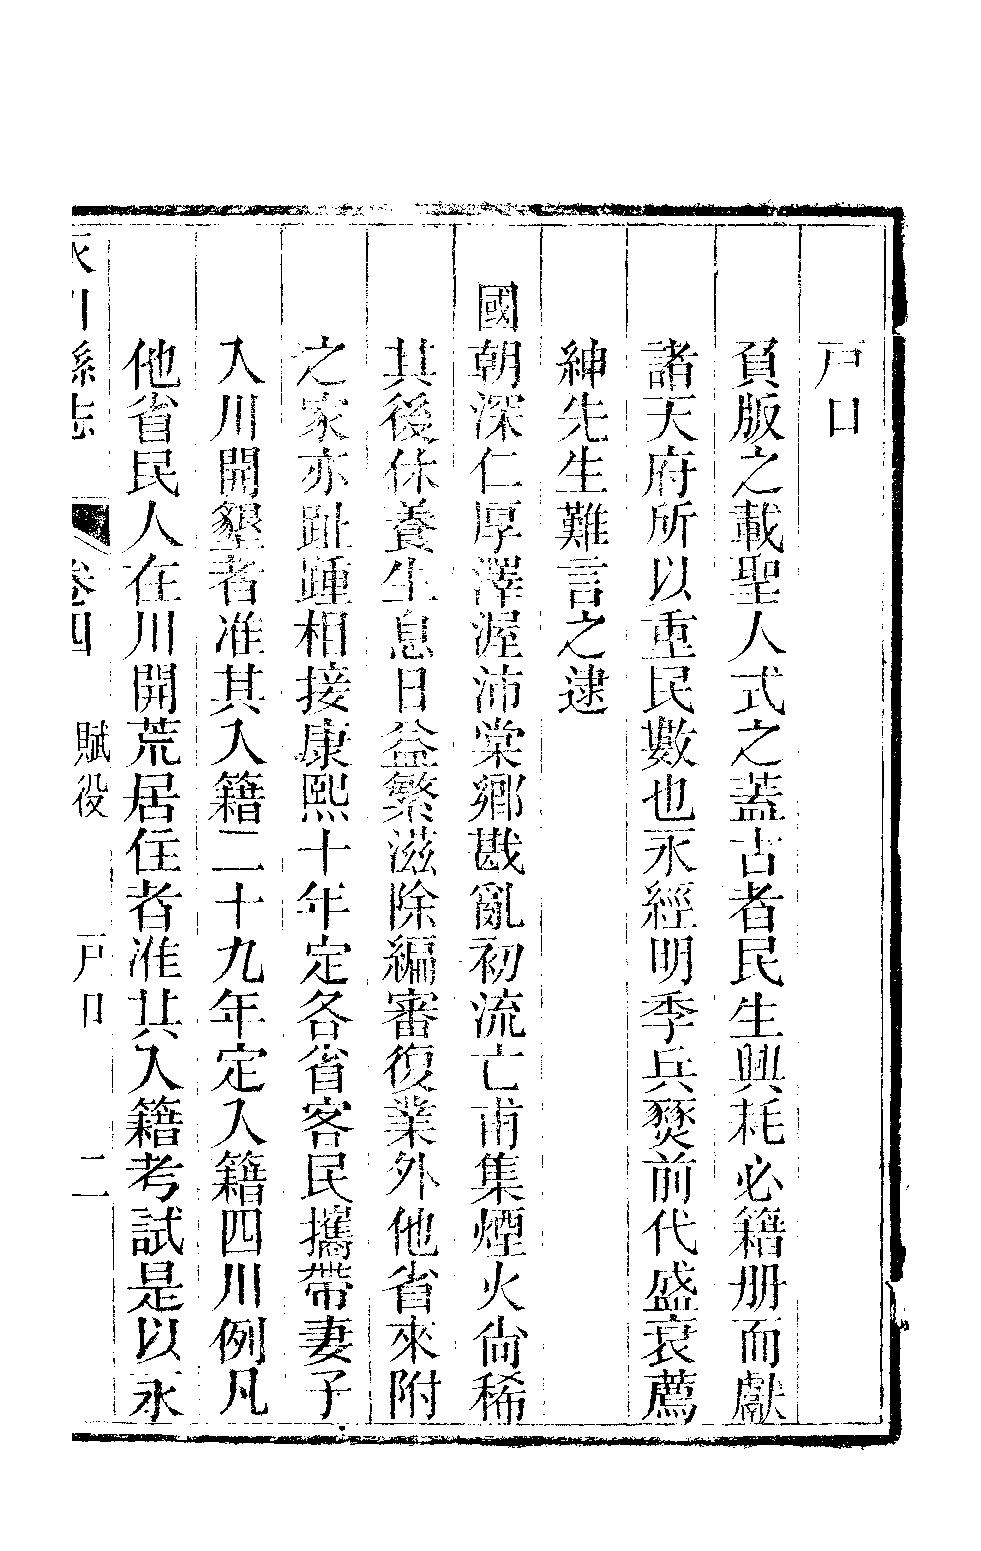 戸口
負版之載聖人式之蓋古者民生興耗必籍册而獻
諸天府所以重民數也永經明季兵燹前代盛衰薦
紳先生難言之逮
國朝深仁厚澤渥沛棠鄉戡亂初流亡甫集煙火尙稀
其後休養生息日益繁滋除編審復業外他省來附
之家亦趾踵相接康熙十年定各省客民攜帶妻子
入川開墾者准其入籍二十九年定入籍四川例凡
他省民人在川開荒居住者准其入籍考試是以永
永川縣志 卷四 賦役 戸口 二